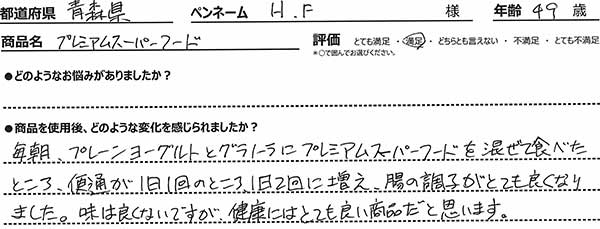 都道府県 青森県 ペンネーム H.F 様 年齢 49 歳
商品名 プレミアムスーパーフード 評価 とても満足 ・ 満足 ・ どちらとも言えない ・ 不満足 ・ とても不満足
*○で囲んでお選びください。
●どのようなお悩みがありましたか？
●商品を使用後、どのような変化を感じられましたか？
毎朝、プレーンヨーグルトとグラノーラにプレミアムスーパーフードを混ぜて食べた
ところ、便通が1日1回のところ、1日2回に増え、腸の調子がとても良くなり
ました。味は良くないですが、健康にはとても良い商品だと思います。